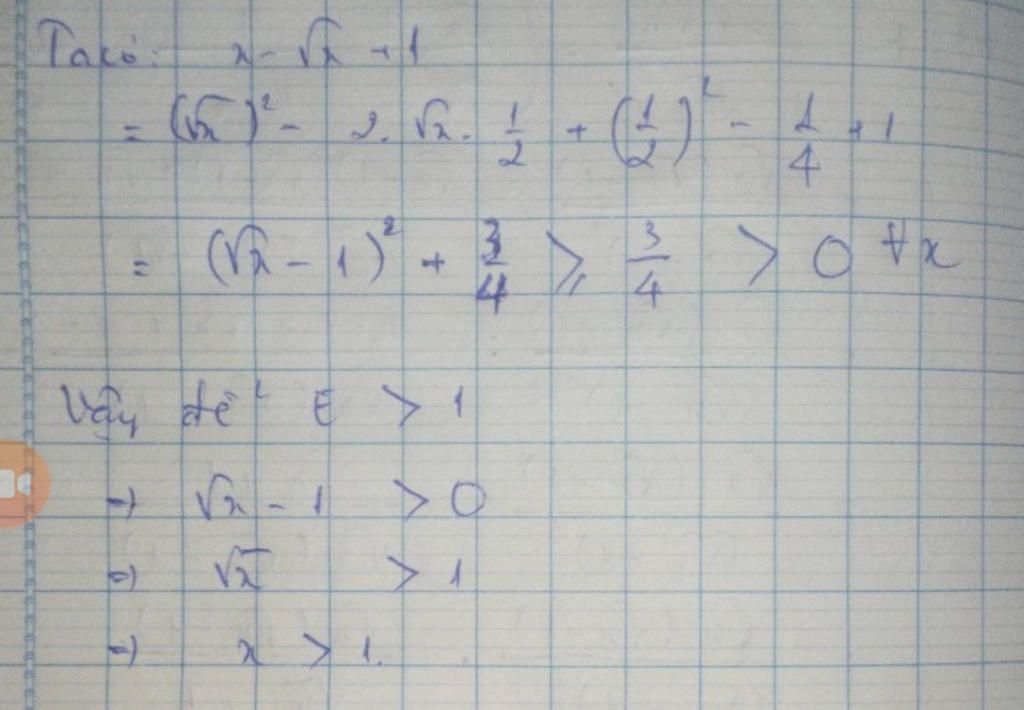 Ta có: x - √x + 1
= (√x)² - 2. √x. 1/2 + (1/2)² - 1/4 + 1
= (√x - 1)² + 3/4 ⩾ 3/4 > 0 ∀x
Vậy để E > 1
⇒ √x - 1 > 0
⇒ √x > 1
⇒ x > 1.